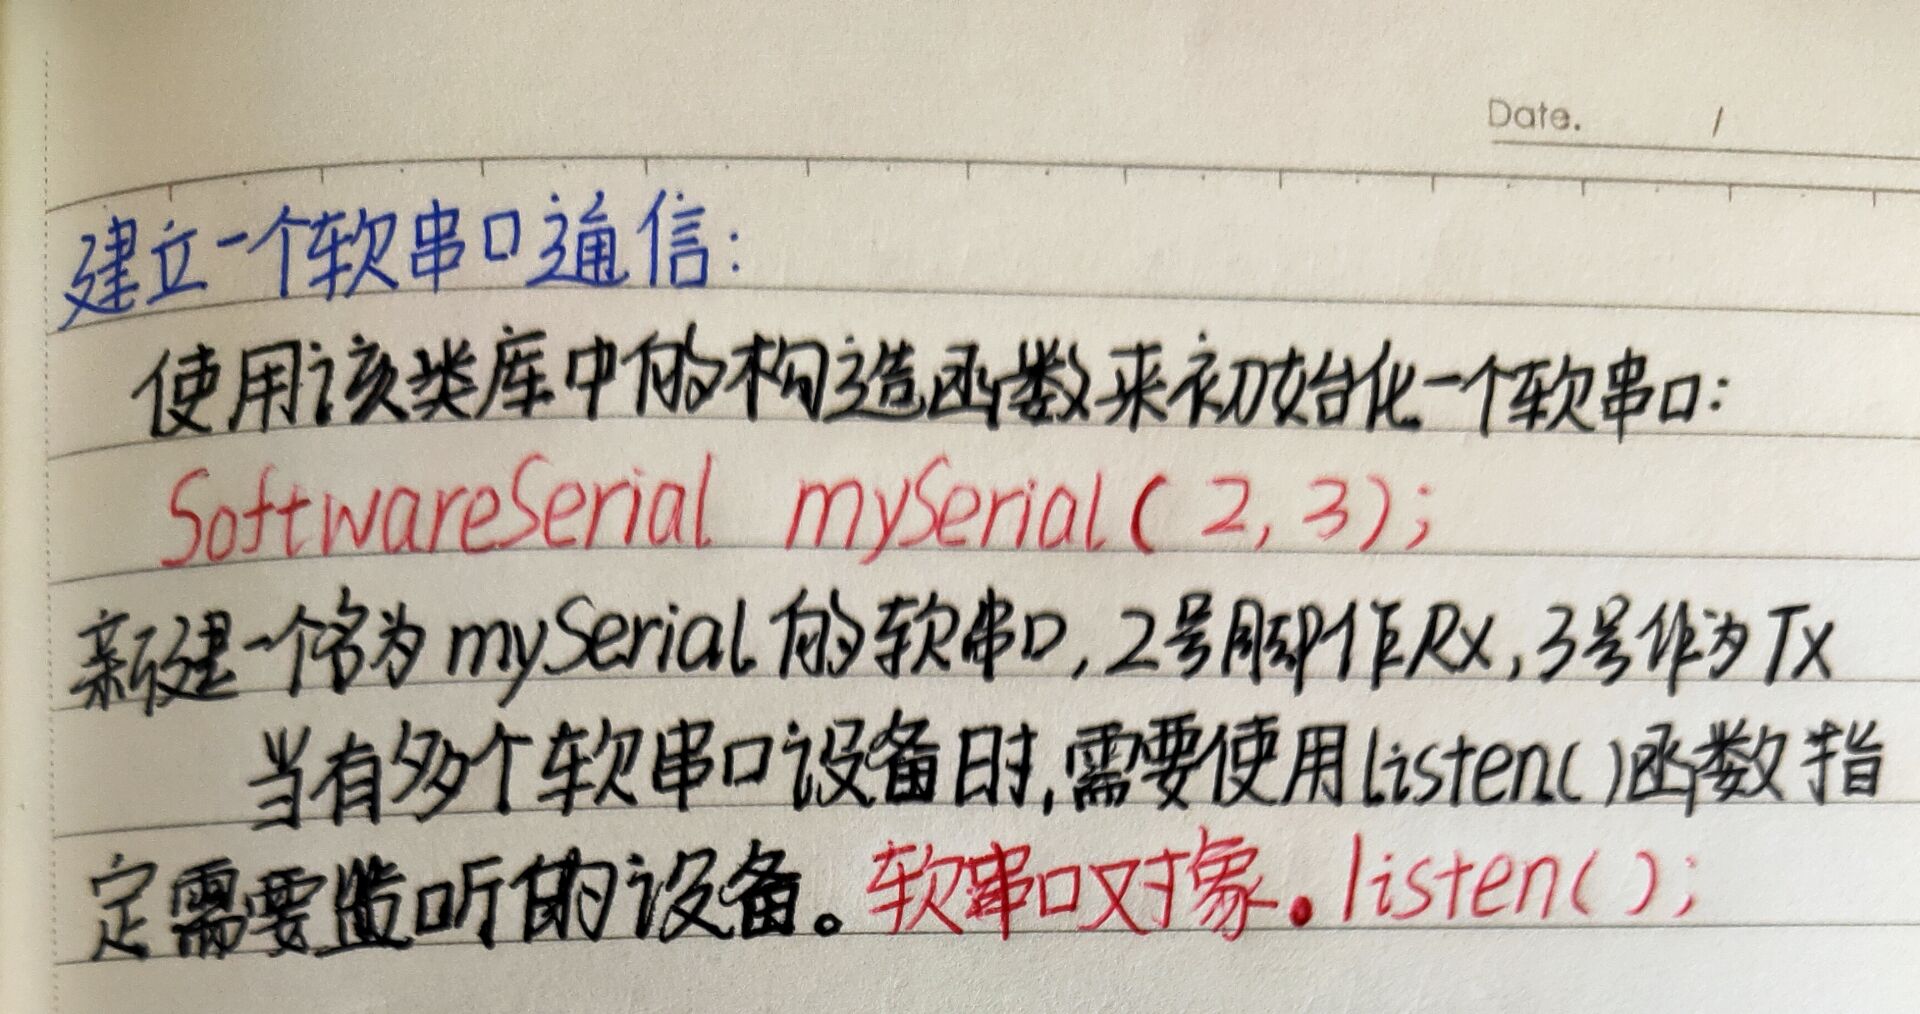 Date. /
建立一个软串口通信:
使用该类库中的构造函数来初始化一个软串口:
SoftwareSerial mySerial( 2, 3);
新建一个名为mySerial的软串口,2号脚作Rx,3号作为Tx
当有多个软串口设备时,需要使用listen()函数指
定需要监听的设备。软串口对象.listen();